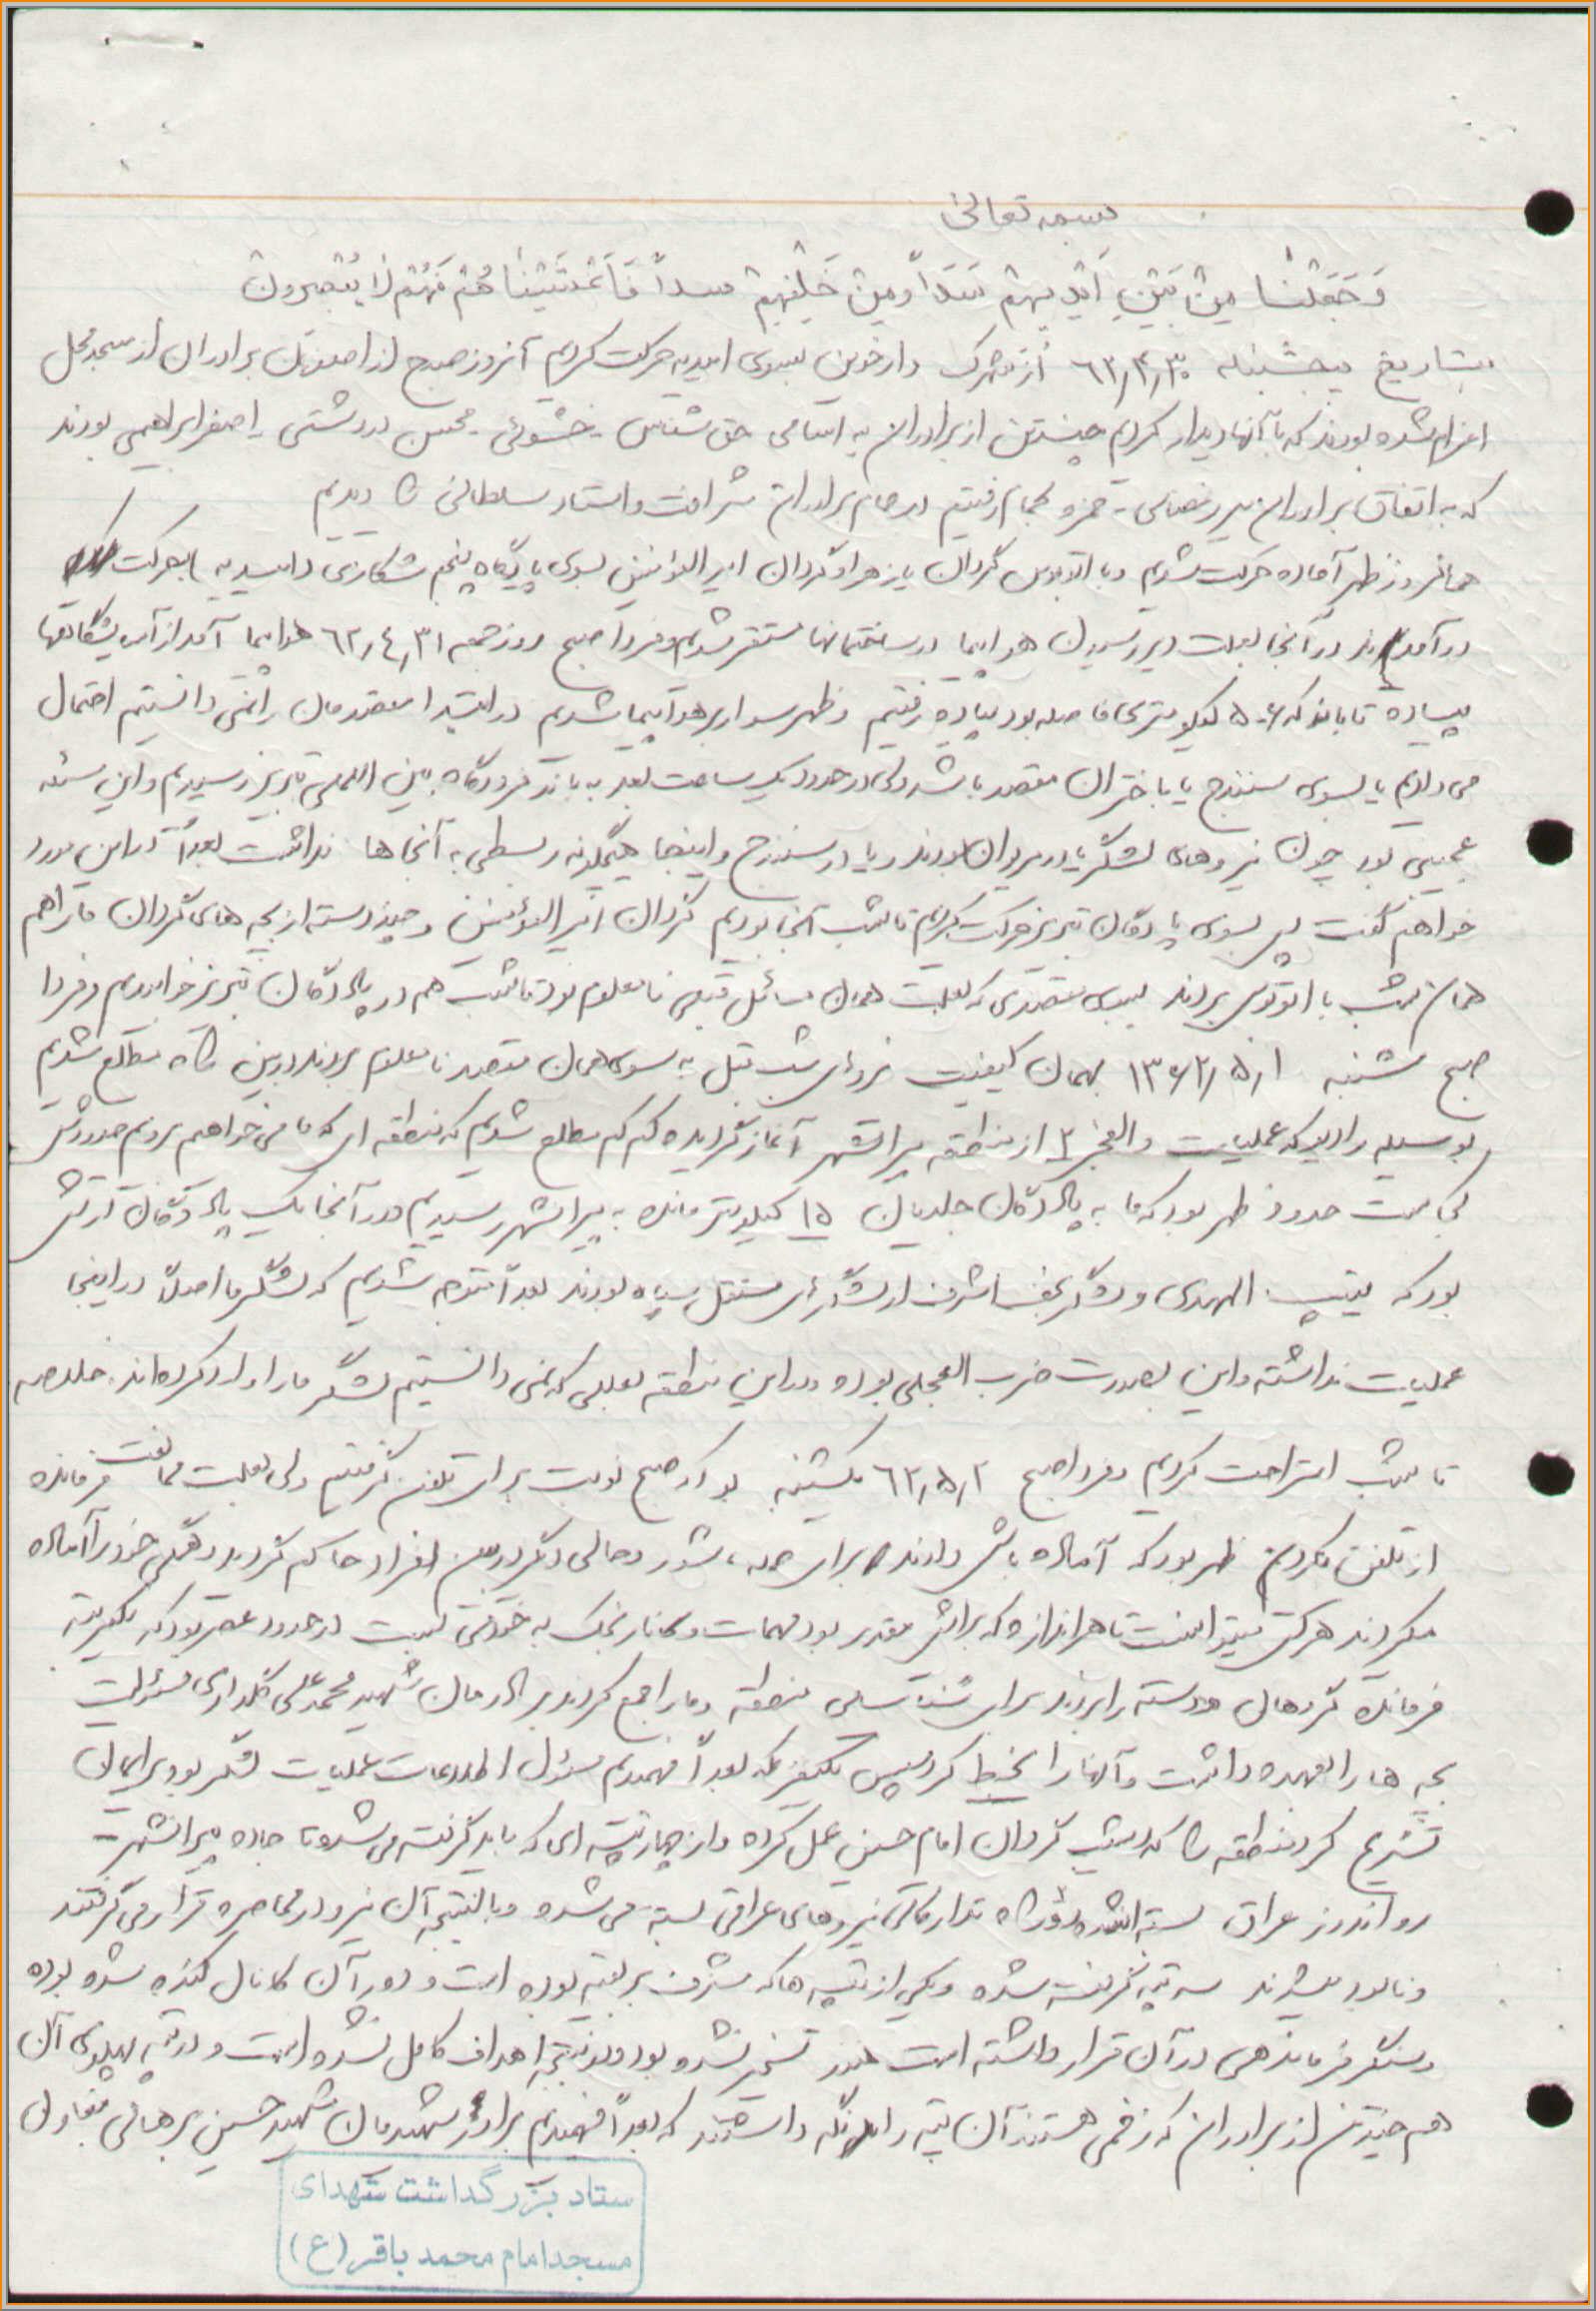 بسمه تعالی
وَجَعَلْنَا مِنْ بَیْنِ اَیْدیهِمْ سَدّاً وَمِنْ خَلْفِهِمْ سداً فَاَغْشَیْنَاهُمْ فَهُمْ لَا یُبْصِرونَ
بتاریخ پنجشنبه ۶۲٫۴٫۳۰ از شهرک دارخوین بسوی امیدیه حرکت کردیم آنروز صبح از اصفهان برادران از مسجد محل
اعزام شده بودند که با آنها دیدار کردیم چندتن از برادران به اسامی حق شناس - خشوئی - محسن دردشتی - اصغر ابراهیمی بودند
که به اتفاق برادران میررضائی - حمزه بحمام رفتیم در حمام برادران شرافت و استاد سلطانی را دیدیم
همانروز ظهر آماده حرکت شدیم و با اتوبوس گردان یا زهرا و گردان امیرالمؤمنین بسوی پایگاه پنجم شکاری امیدیه بحرکت
درآمدند در آنجا بعلت دیر رسیدن هواپیما در ساختمانها مستقر شدیم و فردا صبح روز جمعه ۶۲٫۴٫۳۱ هواپیما آمد از آسایشگاهها
پیاده تا باند که ۵-۶ کیلومتری فاصله بود پیاده رفتیم و ظهر سوار بر هواپیما شدیم در ابتدا مقصدمان را نمی دانستیم احتمال
می دادیم یا بسوی سنندج یا باختران مقصد باشد ولی در حدود یک ساعت بعد به باند فرودگاه بین المللی تبریز رسیدیم و این مسئله
عجیبی بود چون نیروهای لشگر یا در مریوان بودند و یا در سنندج و اینجا هیچگونه ربطی به آنجاها نداشت بعداً در این مورد
خواهم گفت پس بسوی پادگان تبریز حرکت کردیم تا شب آنجا بودیم گردان امیرالمؤمنین و چند دسته از بچه های گردان ما را هم
همان شب با اتوبوس بردند بسوی مقصدی که بعلت همان مسائل قبلی نامعلوم بود تا شب هم در پادگان تبریز خوابیدیم و فردا
صبح شنبه ۱۳۶۲٫۵٫۱ بهمان کیفیت نیروهای شب قبل به سوی همان مقصد نامعلوم بردند در بین راه مطلع شدیم
بوسیله رادیو که عملیات والفجر ۲ از منطقه پیرانشهر آغاز گردیده کم کم مطلع شدیم که منطقه ای که ما می خواهیم برویم حدودش
کجاست حدود ظهر بود که ما به پادگان جلدیان ۱۵ کیلومتر مانده به پیرانشهر رسیدیم در آنجا یک پادگان ارتش
بود که تیپ المهدی و لشگر نجف اشرف از لشگرهای مستقل سپاه بودند بعداً متوجه شدیم که لشگر ما اصلاً در اینجا
عملیات نداشته و این بصورت ضرب العجلی بوده و در این منطقه بعللی که نمی دانستیم لشگر ما را وارد کرده اند. خلاصه
تا شب استراحت کردیم و فردا صبح ۶۲٫۵٫۲ یکشنبه بود که صبح نوبت برای تلفن گرفتیم ولی بعلت مخالفت فرمانده
از تلفن نکردیم ظهر بود که آماده باش دادند برای حمله، شور و حالی دگر در بین افراد حاکم گردید و همگی خود را آماده
میکردند هر کس میتوانست تا هر اندازه که برایش مقدور بود مهمات و نارنجک به خودش بست در حدود عصر بود که یکمرتبه
فرمانده گردهان و دسته را بردند برای شناسایی منطقه و ما را جمع کردند برادرمان شهید محمدعلی گلداری مسئولیت
بچه ها را بعهده داشت و آنها را بخط کرد سپس یکنفر که بعداً فهمیدیم مسئول اطلاعات عملیات لشگر بود برایمان
تشریح کرد منطقه را که دیشب گردان امام حسین عمل کرده و از چهار تپه ای که باید گرفته می شد و تا جاده پیرانشهر -
رواندوز عراق بسته شده و راه تدارکاتی نیروهای عراقی بسته می شده و بالنتیجه آن نیرو در محاصره قرار می گرفتند
و نابود میشدند سه تپه گرفته شده و یکی از تپه ها که مشرف بر بقیه بوده است و دور آن کانال کنده شده بوده
و سنگر فرماندهی در آن قرار داشته است هنوز تسخیر نشده بود و در نتیجه اهداف کامل نشده است و در تپه پهلوی آن
هم چندتن از برادران که زخمی هستند آن تپه را نگه داشتند که بعداً فهمیدیم برادر شهیدمان شهید حسین برهانی معاون
ستاد بزرگداشت شهدای
مسجد امام محمد باقر (ع)